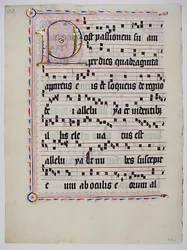 Post passionem su am
per dies quadraginta
apparens e is et loquens de regno
de i allelu ya et videntibus
illis ele vatus est
allelu ya et nu bes suscepit
e um ab oculis e orum al